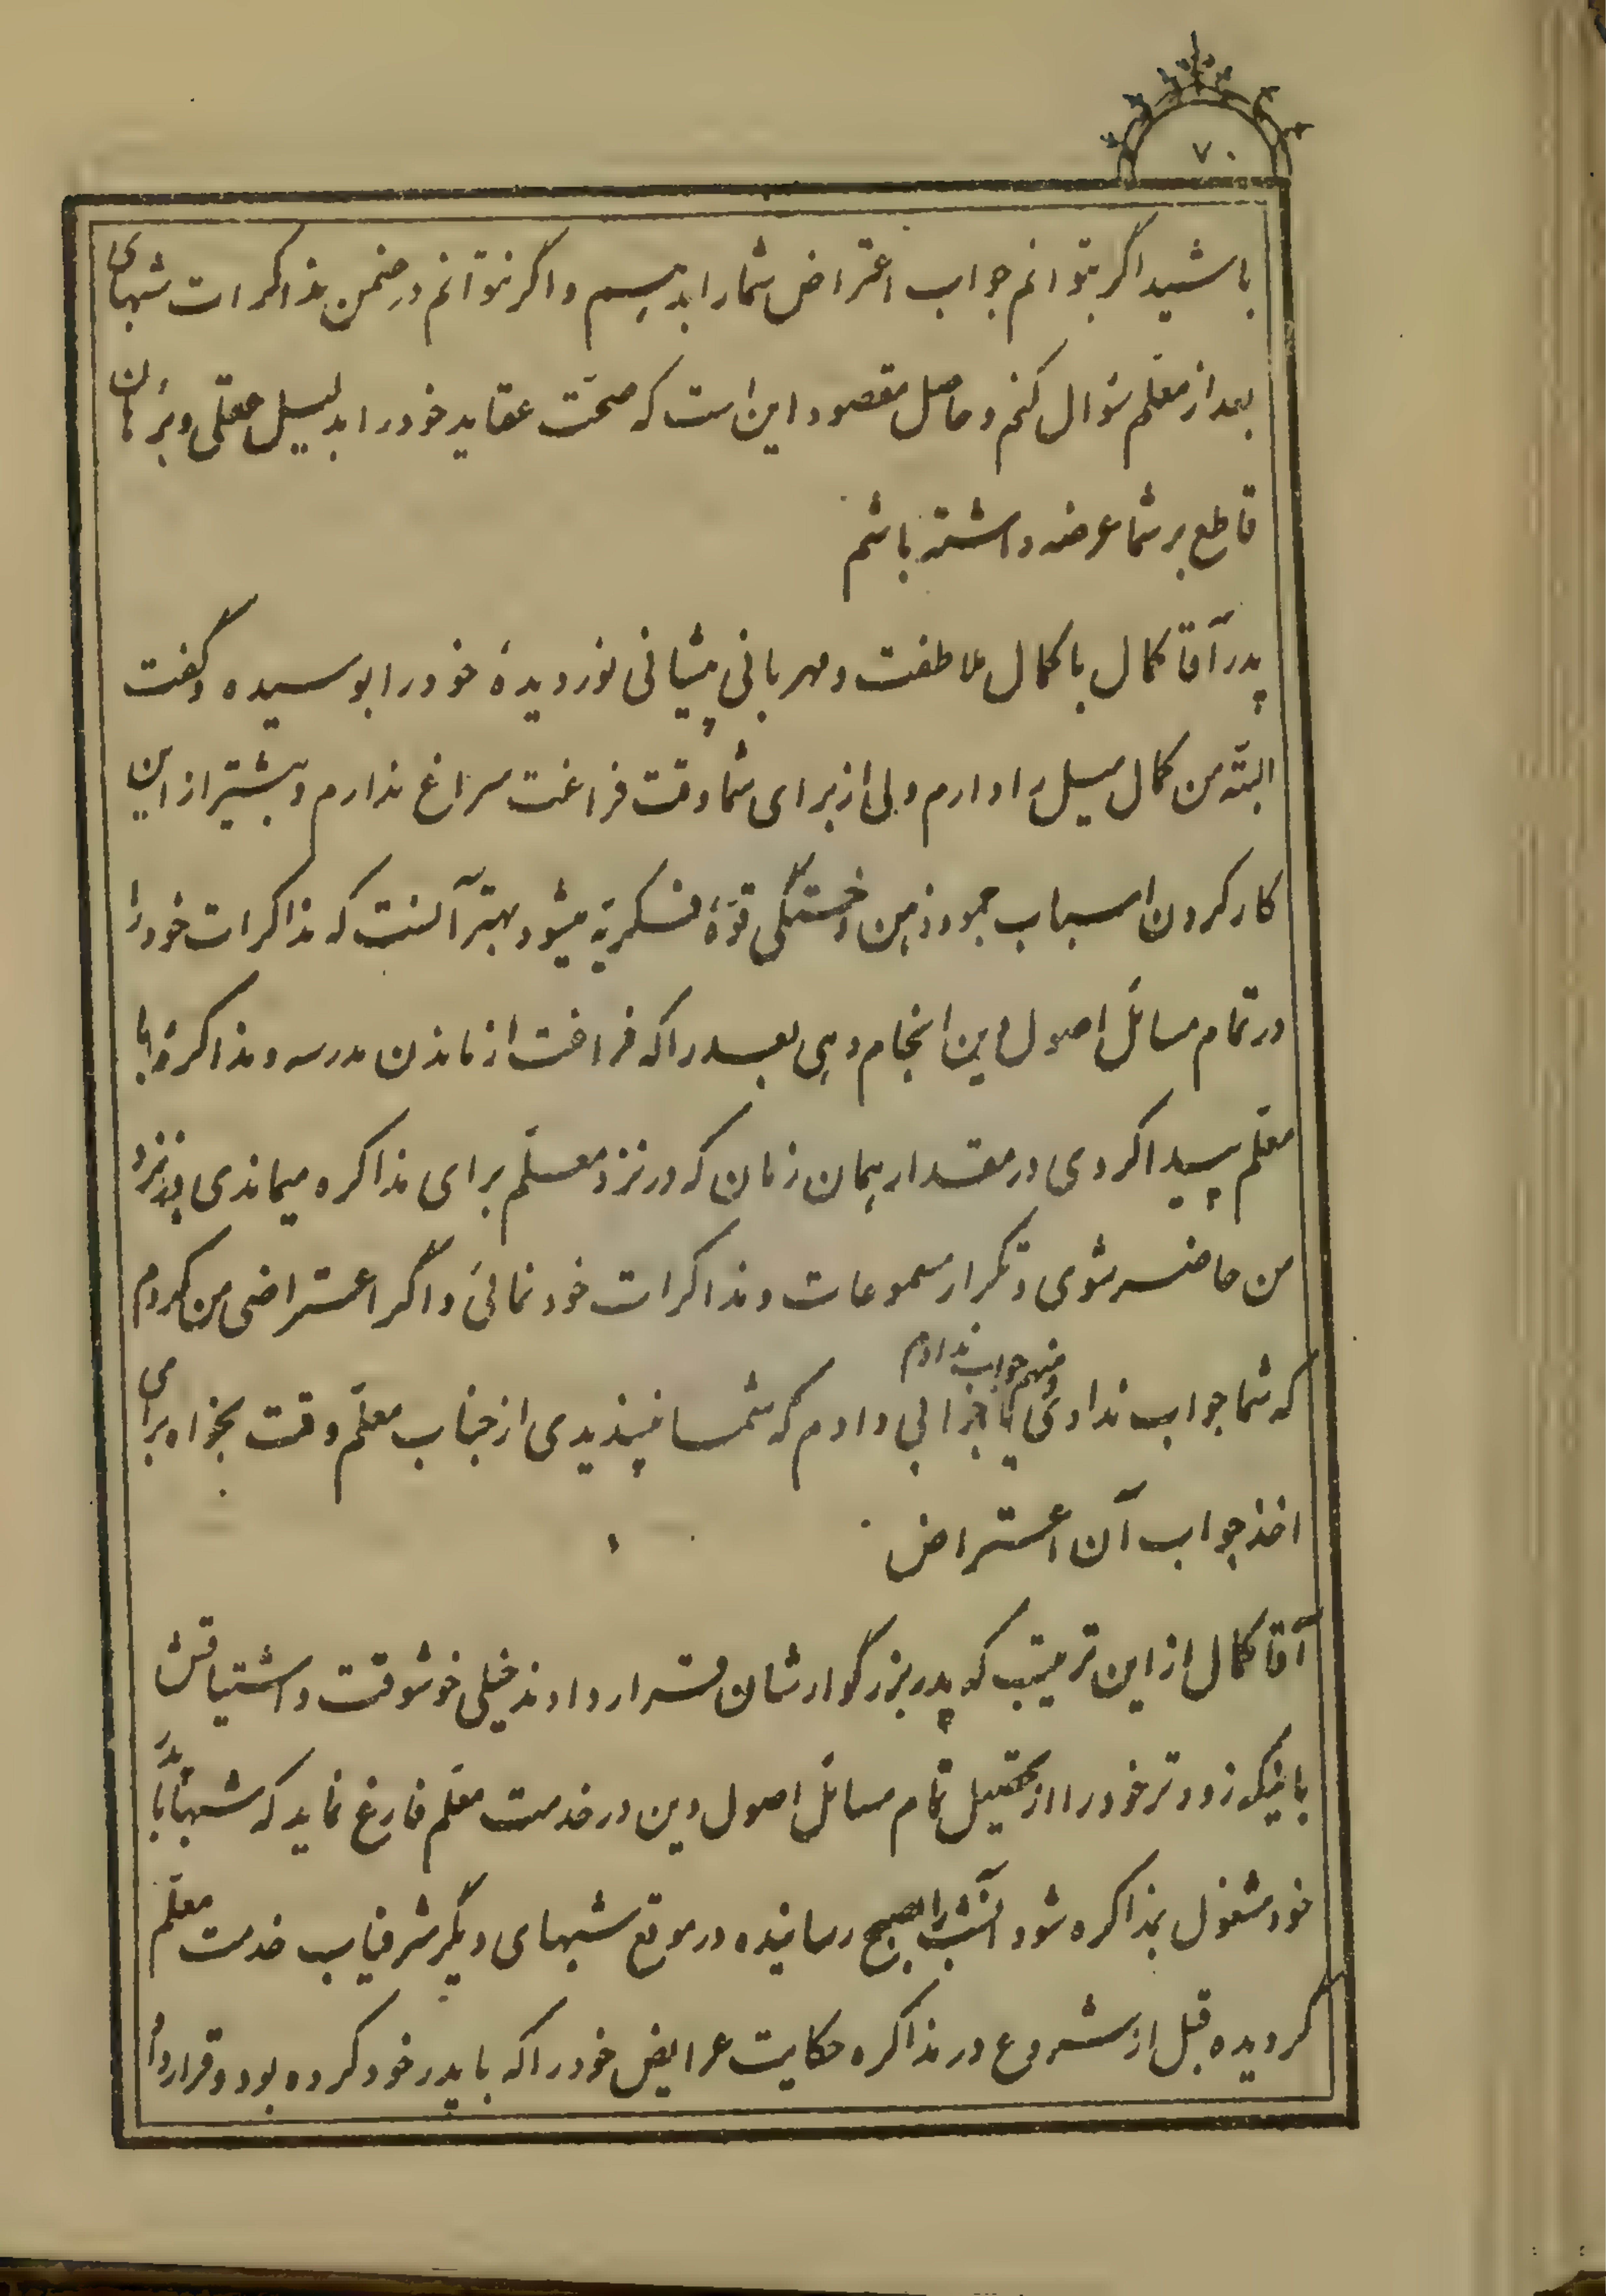 ۷۰
باشید اگر بتوانم جواب اعتراض شما را بدهم و اگر نتوانم در ضمن مذاکرات شبهای
بعد از معلم سؤال کنم و حاصل مقصود این است که صحّت عقاید خود را بدلیل عقلی و برهان
قاطع بر شما عرضه داشته باشم
پدر آقا کمال با کمال ملاطفت و مهربانی پیشانی نوردیدهٔ خود را بوسیده و گفت
البتّه من کمال میل را دارم ولی از برای شما وقت فراغت سراغ ندارم و بیشتر از این
کار کردن اسباب جمود ذهن و خستگی قوّهٔ فکریّه میشود بهتر آنست که مذاکرات خود را
در تمام مسائل اصول دین انجام دهی بعد را که فراغت از ماندن مدرسه و مذاکرهٔ با
معلّم پیدا کردی در مقدار همان زمان که در نزد معلّم برای مذاکره میماندی در نزد
من حاضر شوی و تکرار مسموعات و مذاکرات خود نمائی و اگر اعتراضی من کردم
که شما جواب ندادی و منهم جواب ندادم یا جوابی دادم که شما نپسندیدی از جناب معلّم وقت بخواه برای
اخذ جواب آن اعتراض
آقا کمال از این ترتیب که پدر بزرگوارشان قرار دادند خیلی خوشوقت و اشتیاقش
باینکه زودتر خود را از تحصیل تمام مسائل اصول دین در خدمت معلّم فارغ نماید که شبها با پدر
خود مشغول بمذاکره شود آنشب را بصبح رسانیده در موقع شبهای دیگر شرفیاب خدمت معلّم
گردیده قبل از شروع در مذاکره حکایت عرایض خود را که با پدر خود کرده بود و قرارداد